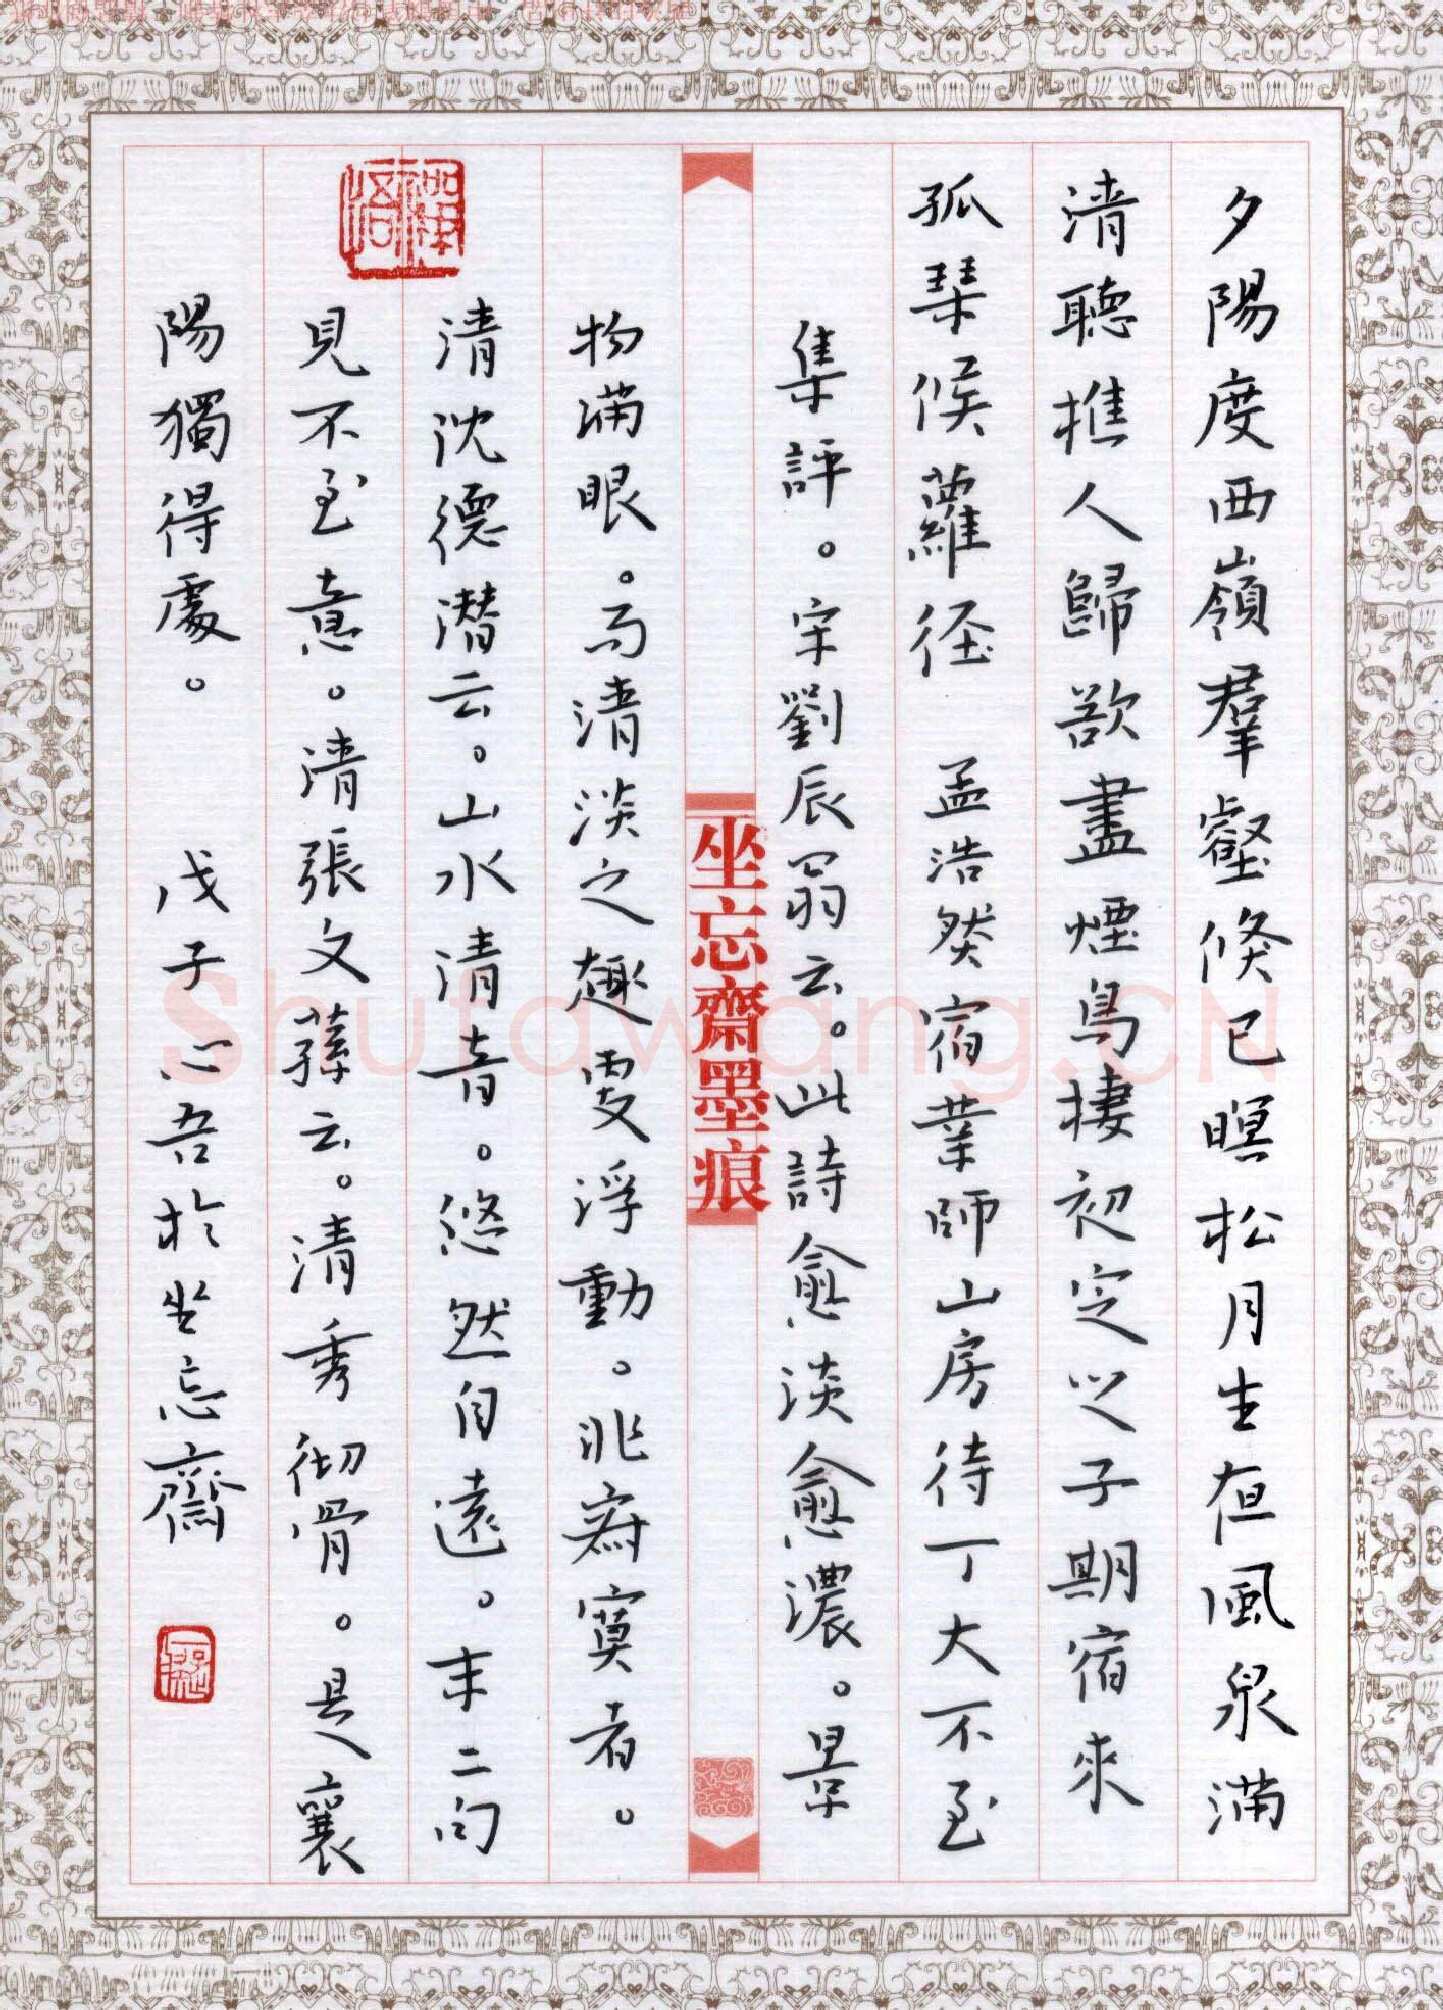 夕陽度西嶺羣壑倏已暝松月生夜風泉滿
清聽樵人歸欲盡煙鳥棲初定之子期宿來
孤琴候蘿徑 孟浩然宿業師山房待丁大不至
集評。宋劉辰翁云。此詩愈淡愈濃。景
物滿眼。而清淡之趣更浮動。非寂寞者。
清沈德潛云。山水清音。悠然自遠。末二句
見不至意。清張文蓀云。清秀彻骨。是襄
陽獨得處。 戊子心吾於坐忘齋
坐忘齋墨痕
Shufawang.CN